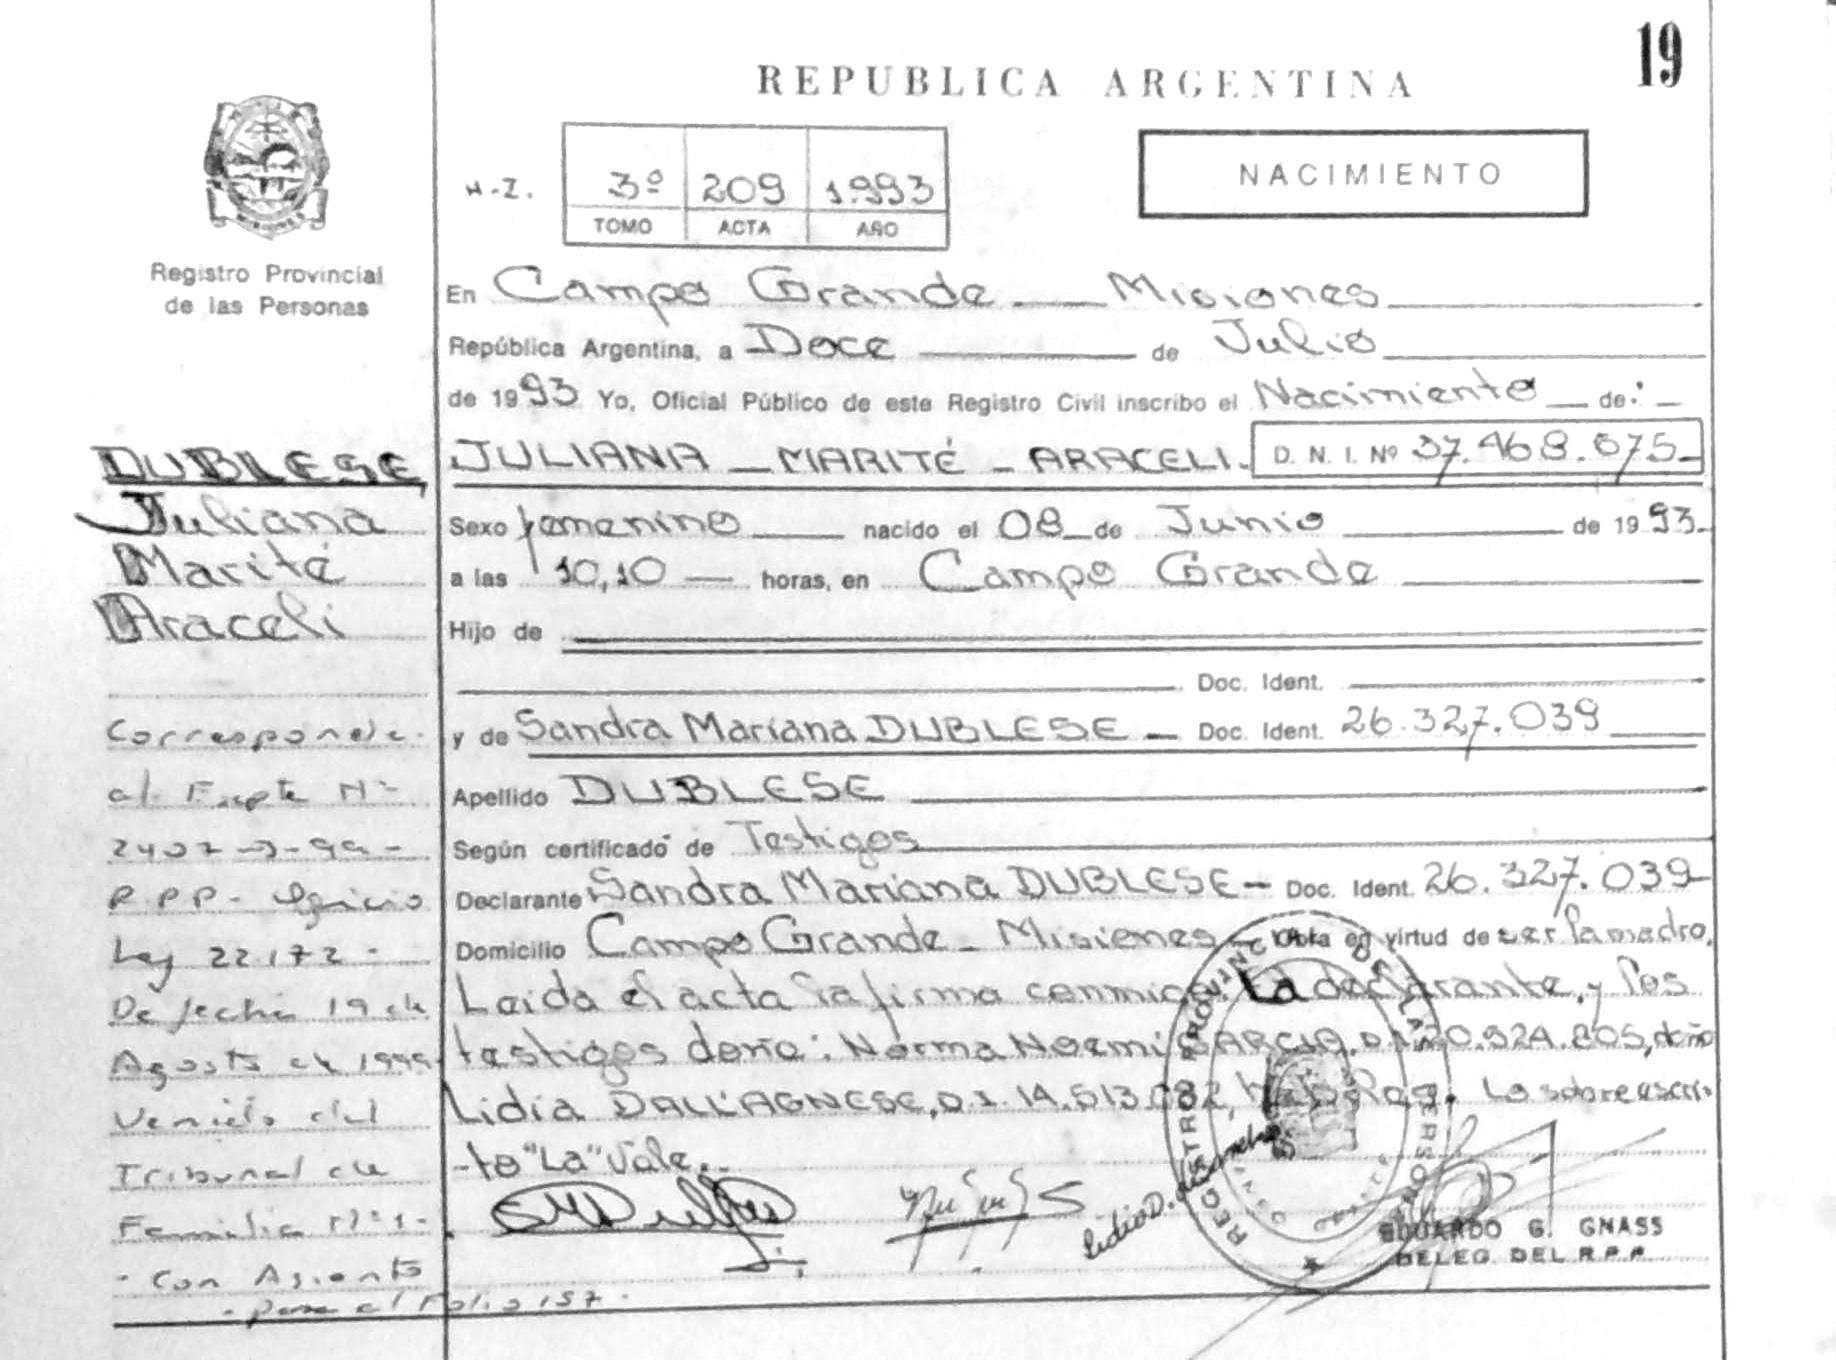 19
REPUBLICA ARGENTINA
NACIMIENTO
H.I.
3º 209 1.993
TOMO ACTA AÑO
Registro Provincial
de las Personas
En Campo Grande - Misiones
República Argentina, a Doce de Julio
de 1993 Yo, Oficial Público de este Registro Civil inscribo el Nacimiento de:
JULIANA - MARITÉ - ARACELI. D. N. I. Nº 37.468.675
Sexo femenino nacido el 08 de Junio de 1993.
a las 10,10 horas, en Campo Grande
Hijo de
Doc. Ident.
y de Sandra Mariana DUBLESE - Doc. Ident. 26.327.039
Apellido DUBLESE
Según certificado de Testigos
Declarante Sandra Mariana DUBLESE - Doc. Ident. 26.327.039
Domicilio Campo Grande - Misiones - Obra en virtud de ser la madre.
Leida el acta la firma conmigo La declarante, y los
testigos doña: Norma Noemi GARCIA, D.I. 20.924.805, doña
Lidia DALL'AGNESE, D.I. 14.513.082, Lo sobreescri-
-to "La" Vale.
DUBLESE,
Juliana
Marité
Araceli
Corresponde
al Expte Nº
2407
R.P.P. - Oficio
Ley 22.172 -
De fecha 19 de
Agosto de 1999
Venido del
Tribunal de
Familia Nº 1 -
- Con Asiento
- para el Folio 157 -
REGISTRO PROVINCIAL DE LAS PERSONAS
EDUARDO G. GNASS
DELEG. DEL R.P.P.